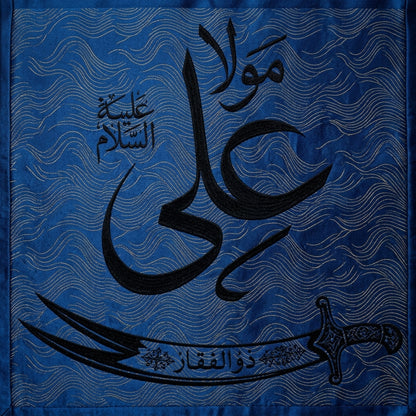 مَولا
علی
عَلَیهِ
السَّلام
ذوالفقار